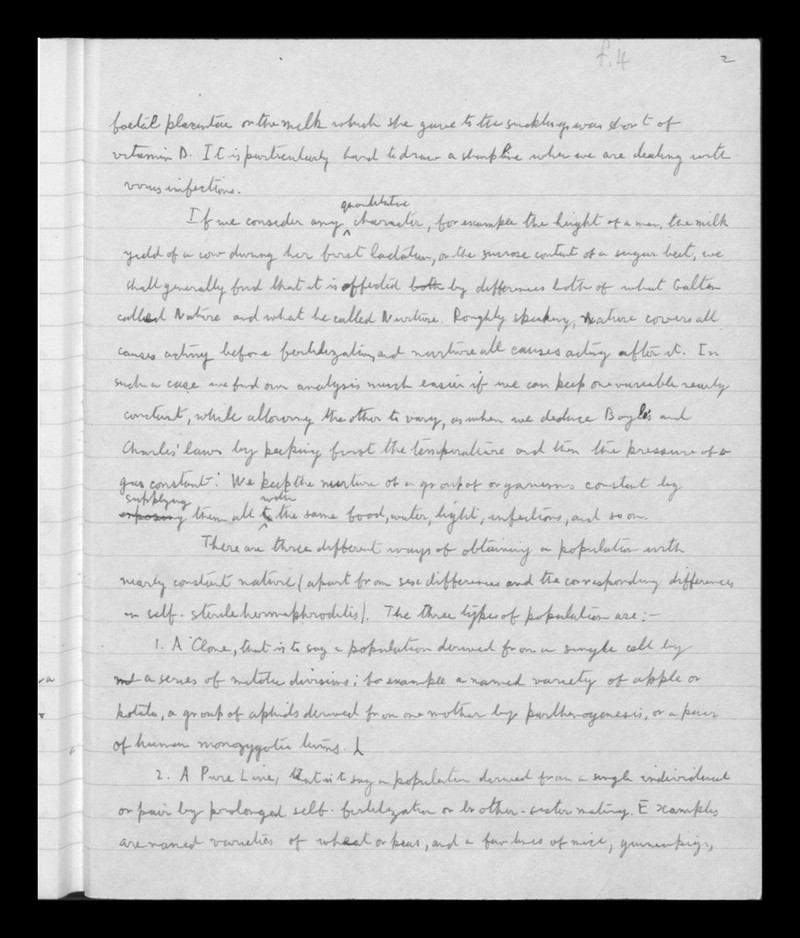 f.4 2
foetal placentae or the milk which she gave to the sucklings was short of
vitamin D. It is particularly hard to draw a sharp line when we are dealing with
virus infections.
quantitative
If we consider any character, for example the height of a man, the milk
yield of a cow during her first lactation, or the sucrose content of a sugar beet, we
shall generally find that it is affected both by differences both of what Galton
called Nature and what he called Nurture. Roughly speaking, nature covers all
causes acting before fertilization, and nurture all causes acting after it. In
such a case we find our analysis much easier if we can keep one variable nearly
constant, while allowing the other to vary, as when we deduce Boyle's and
Charles' laws by keeping first the temperature and then the pressure of a
gas constant. We keep the nurture of a group of organisms constant by
supplying with
exposing them all to the same food, water, light, infections, and so on.
There are three different ways of obtaining a population with
nearly constant nature (apart from sex differences and the corresponding differences
in self-sterile hermaphrodites). The three types of population are:-
1. A Clone, that is to say a population derived from a single cell by
a series of mitotic divisions; for example a named variety of apple or
potato, a group of aphids derived from one mother by parthenogenesis, or a pair
of human monozygotic twins.
2. A Pure Line, that is to say a population derived from a single individual
or pair by prolonged self-fertilization or brother-sister mating. Examples
are named varieties of wheat or peas, and a few lines of mice, guineapigs,